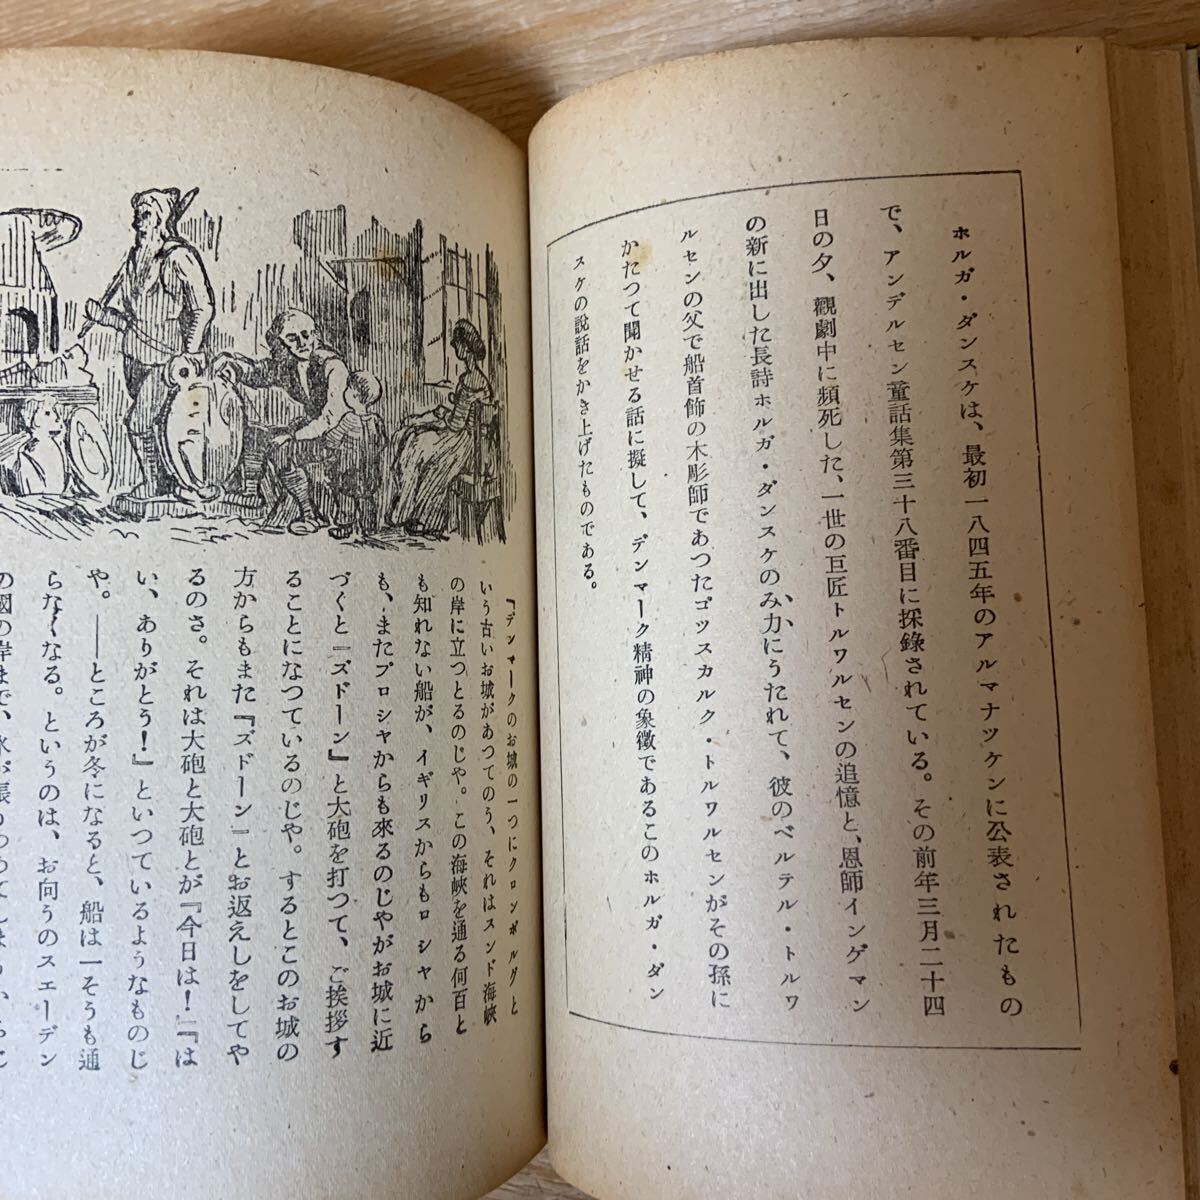 ホルガ・ダンスケは、最初一八四五年のアルマナツケンに公表されたもの
で、アンデルセン童話集第三十八番目に採錄されている。その前年三月二十四
日の夕、觀劇中に頻死した、一世の巨匠トルワルセンの追憶と、恩師インゲマン
の新に出した長詩ホルガ・ダンスケのみ力にうたれて、彼のベルテル・トルワ
ルセンの父で船首飾の木彫師であつたゴツスカルク・トルワルセンがその孫に
かたつて聞かせる話に擬して、デンマーク精神の象徵であるこのホルガ・ダン
スケの說話をかき上げたものである。
『デンマークのお城の一つにクロンボルグと
いう古いお城があつてのう、それはスンド海峽
の岸に立つとるのじや。この海峽を通る何百と
も知れない船が、イギリスからもロシヤから
も、またプロシヤからも來るのじやがお城に近
づくと『ズドーン』と大砲を打つて、ご挨拶す
ることになつているのじや。するとこのお城の
方からもまた『ズドーン』とお返えしをしてや
るのさ。それは大砲と大砲とが『今日は！』『は
い、ありがとう！』といつているようなものじ
や。――ところが冬になると、船は一そうも通
らなくなる。というのは、お向うのスエーデン
の國の岸まで、氷が張